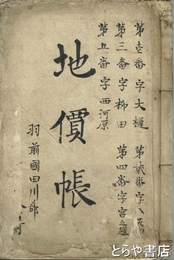 第壱番字大槌
第弐番字八
第三番字柳田
第四番字宮之
第五番字西河原
地價帳
羽前國田川郡
とらや書店